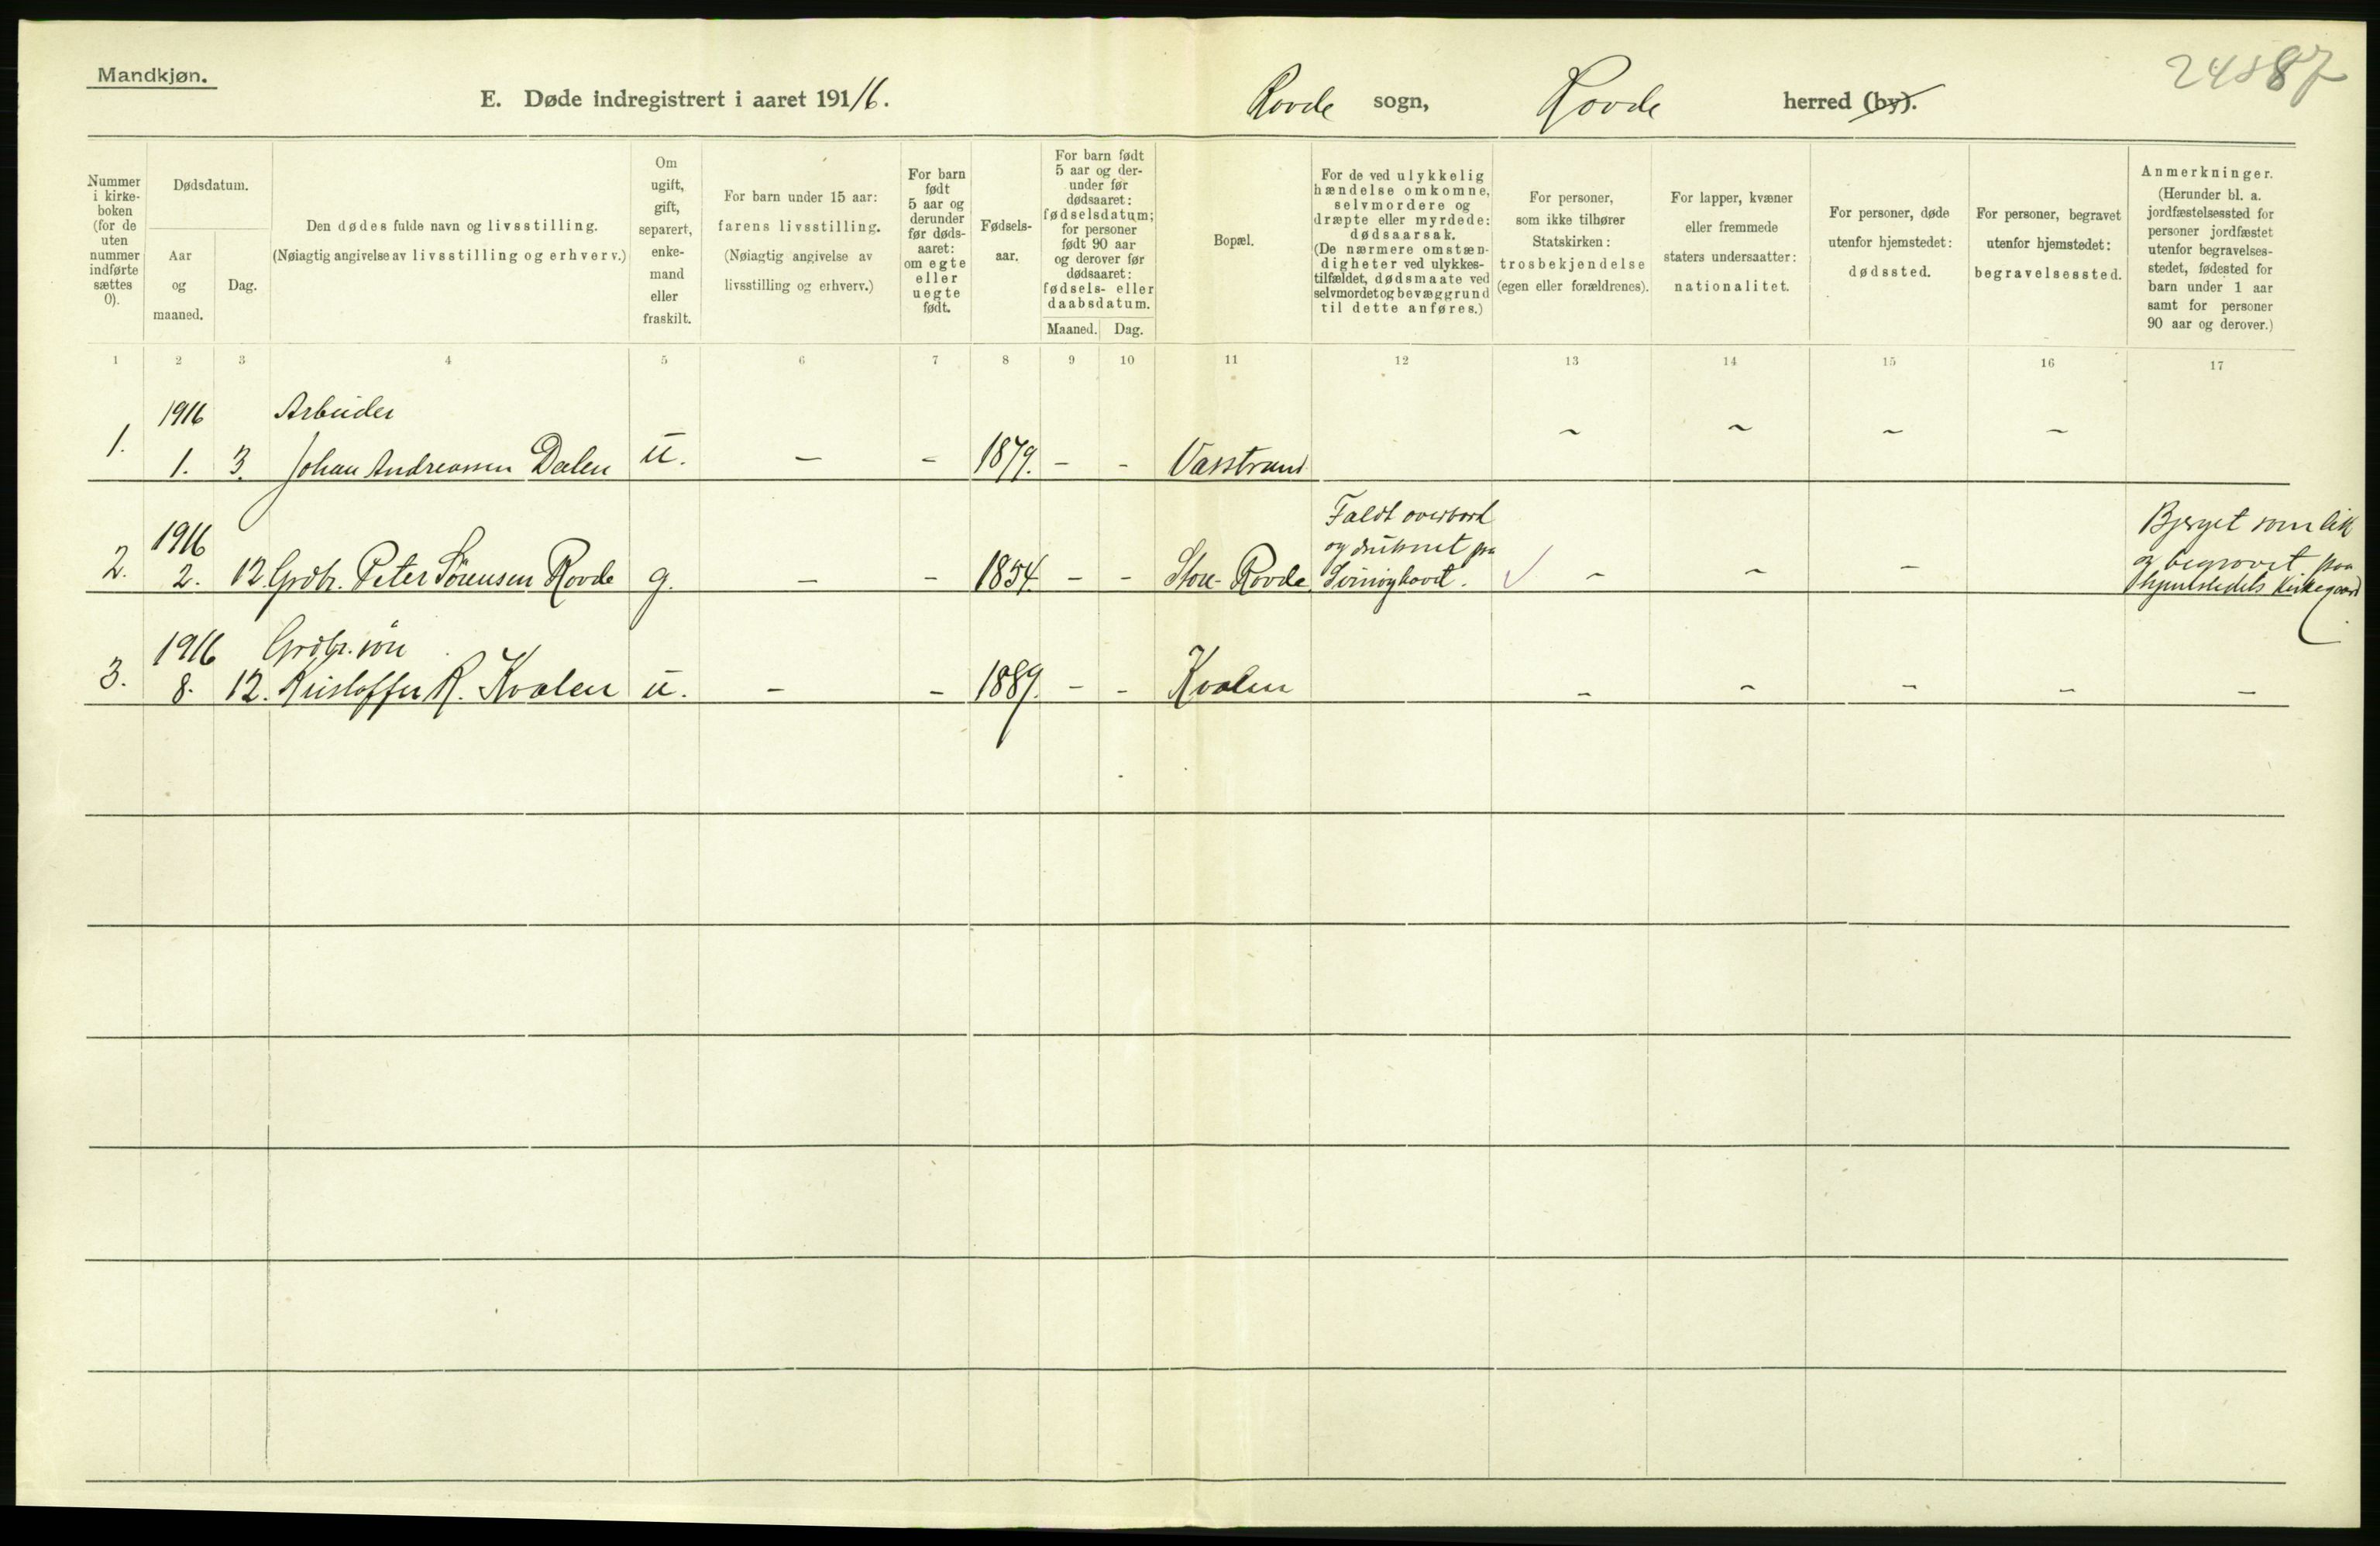 Mandkjøn.
E. Døde indregistrert i aaret 191/6. Rovde sogn, Rovde herred (by).
Nummer i kirke-boken (for de uten nummer indførte sættes 0).
Dødsdatum.
Aar og maaned.
Dag.
Den dødes fulde navn og livsstilling.
(Nøiagtig angivelse av livsstilling og erhverv.)
Om ugift, gift, separert, enke-mand eller fraskilt.
For barn under 15 aar:
farens livsstilling.
(Nøiagtig angivelse av livsstilling og erhverv.)
For barn født 5 aar og derunder før døds-aaret: om egte eller uegte født.
Fødsels-aar.
For barn født 5 aar og der-under før dødsaaret: fødselsdatum; for personer født 90 aar og derover før dødsaaret: fødsels- eller daabsdatum.
Maaned. Dag.
Bopæl.
For de ved ulykkelig hændelse omkomne, selvmordere og dræpte eller myrdede: dødsaarsak.
(De nærmere omstæn-digheter ved ulykkes-tilfældet, dødsmaate ved selvmordet og bevæggrund til dette anføres.)
For personer, som ikke tilhører Statskirken: trosbekjendelse (egen eller forældrenes).
For lapper, kvæner eller fremmede staters undersaatter: nationalitet.
For personer, døde utenfor hjemstedet: dødssted.
For personer, begravet utenfor hjemstedet: begravelsessted.
Anmerkninger.
(Herunder bl. a. jordfæstelsessted for personer jordfæstet utenfor begravelses-stedet, fødested for barn under 1 aar samt for personer 90 aar og derover.)
1 2 3 4 5 6 7 8 9 10 11 12 13 14 15 16 17
1916 Arbeider
1. 1. 3. Johan Andreassen Dalen u. - - 1879. - - Vasstrand - - - -
1916 Faldt overbord Bjerget som lik
og druknet paa og begravet paa
2. 2. 12. Grdbr. Peter Sørensen Rovde g. - - 1854. - - Store-Rovde. Svinøyhavet. - - - hjemstedets kirkegaard
1916 Grdbr. søn
3. 8. 12. Kristoffer R. Kvalen u. - - 1889. - - Kvalen - - - - -